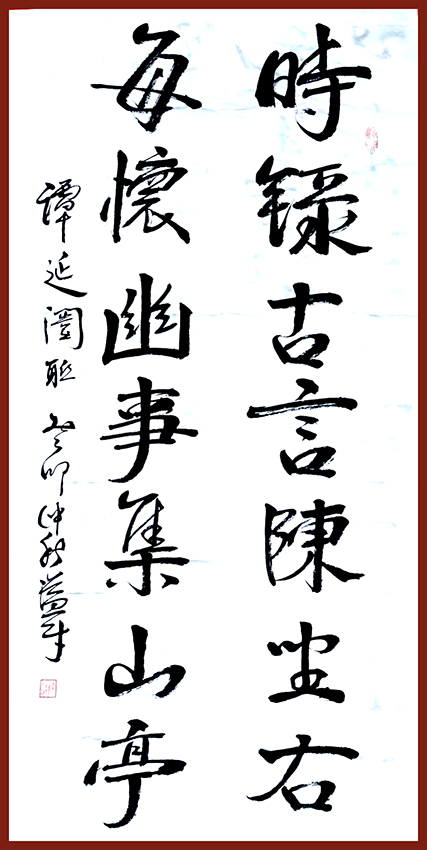 時錄古言陳坐右
每懷幽事集山亭
譚延闓聯 癸卯仲秋